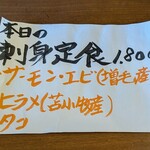 本日の
刺身定食1.800
サーモン・エビ(増毛産
ヒラメ(苫小牧産)
タコ